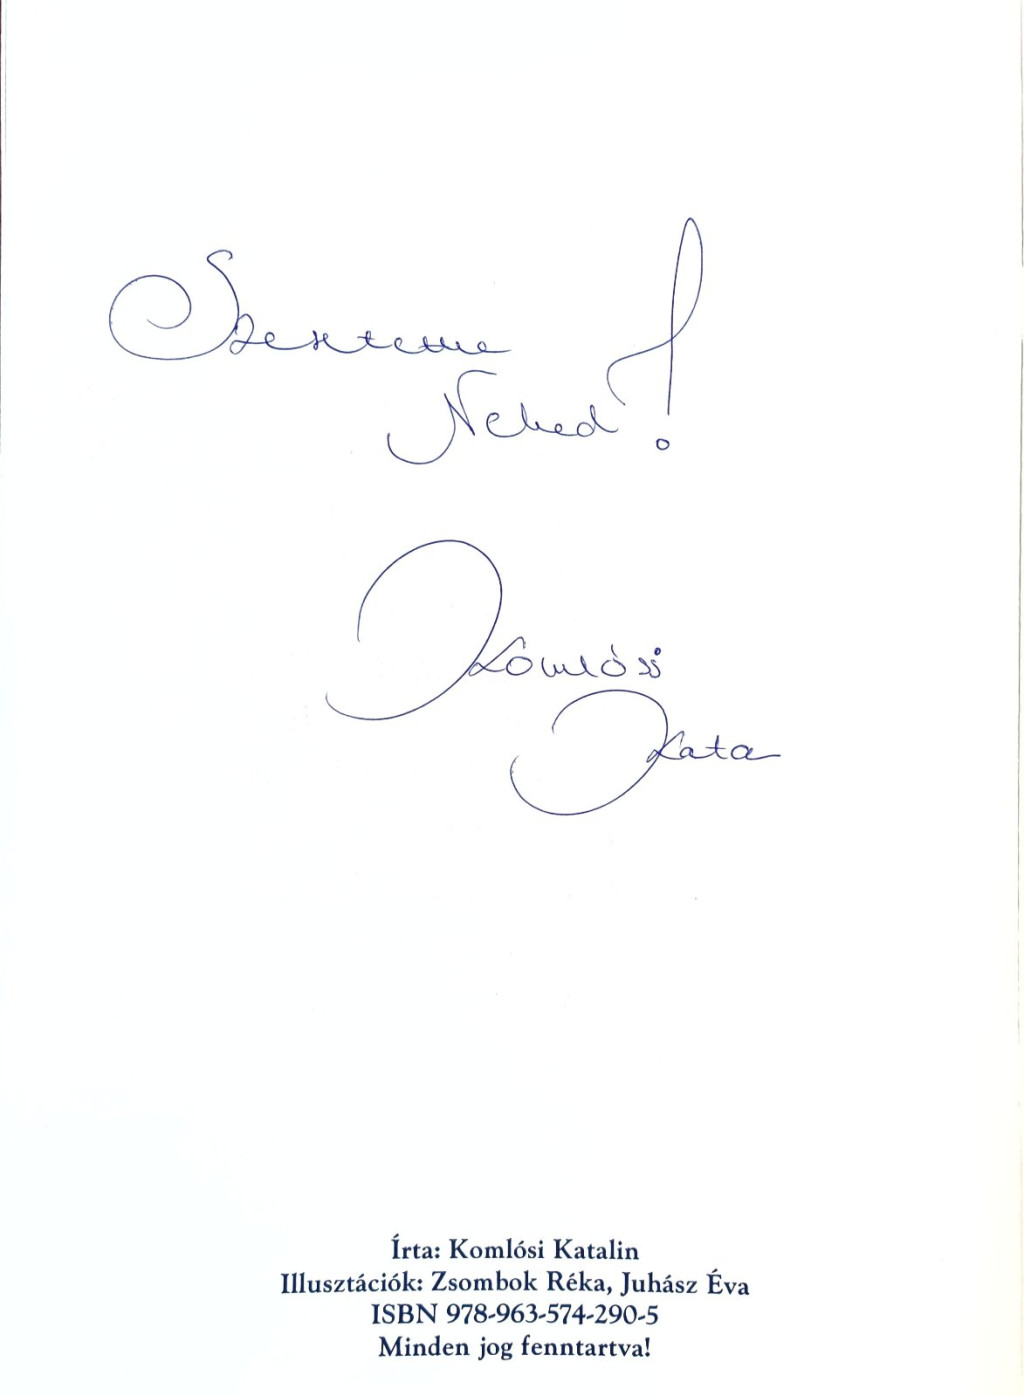 Neked!
Komlósi
Kata
Írta: Komlósi Katalin
Illusztációk: Zsombok Réka, Juhász Éva
ISBN 978-963-574-290-5
Minden jog fenntartva!